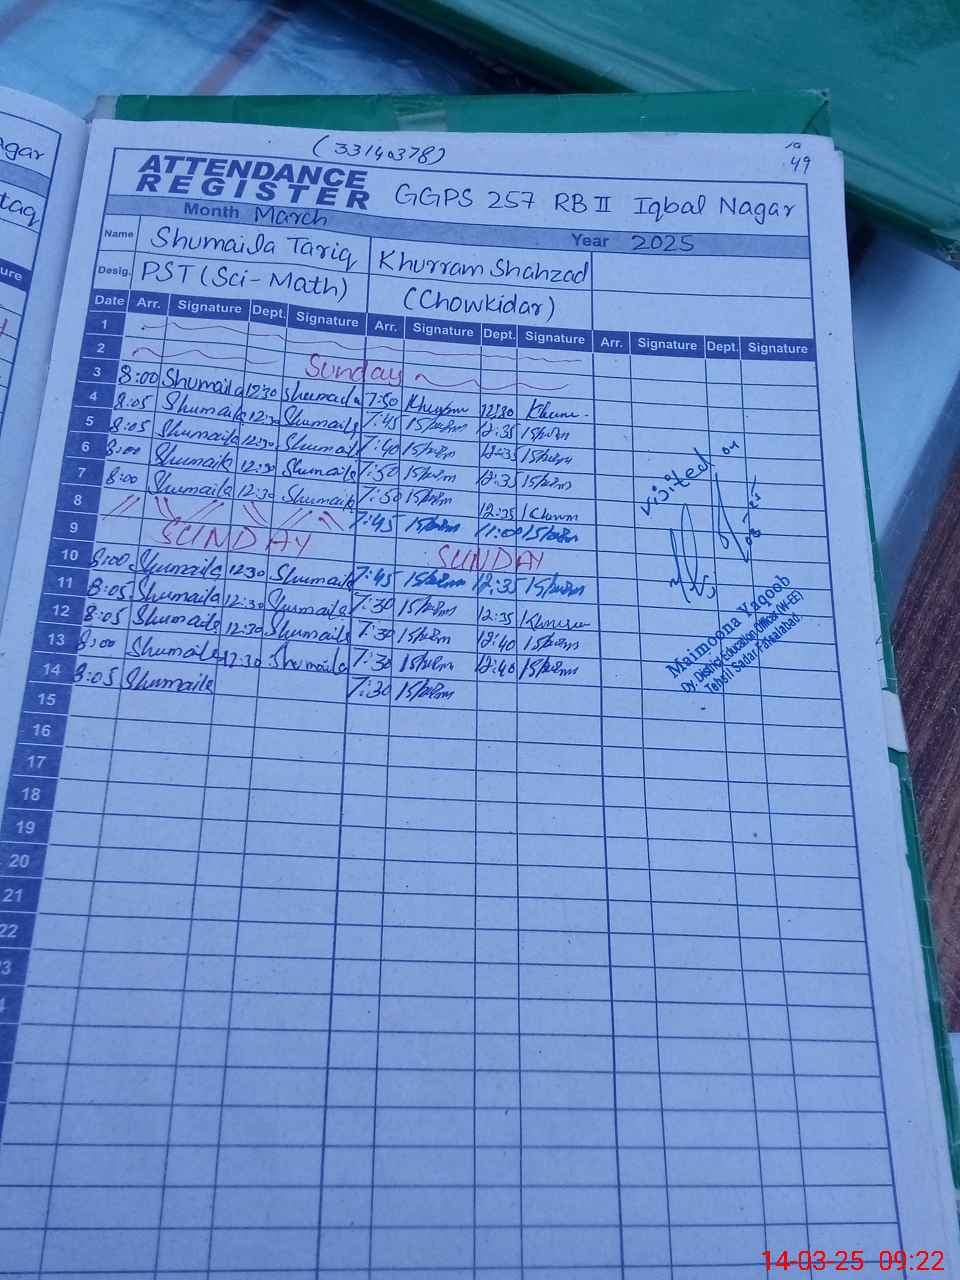 (33140378)
49
ATTENDANCE REGISTER GGPS 257 RB II Iqbal Nagar
Month March Year 2025
Name Shumaila Tariq Khurram Shahzad
Desig. PST (Sci-Math) (Chowkidar)
Date Arr. Signature Dept. Signature Arr. Signature Dept. Signature Arr. Signature Dept. Signature
1
2 Sunday
3 8:00 Shumaila 12:30 Shumaila 7:50 12:30
4 8:05 Shumaila 12:30 Shumaila 7:45 12:35
5 8:05 Shumaila 12:30 Shumaila 7:40 12:35
6 8:00 Shumaila 12:30 Shumaila 7:50 12:35
7 8:00 Shumaila 12:30 Shumaila 7:50 12:35
8 7:45 11:00
9 SUNDAY SUNDAY
10 8:00 Shumaila 12:30 Shumaila 7:45 12:35
11 8:05 Shumaila 12:30 Shumaila 7:30 12:35
12 8:05 Shumaila 12:30 Shumaila 7:30 12:40
13 8:00 Shumaila 12:30 Shumaila 7:30 12:40
14 8:05 Shumaila 7:30
15
16
17
18
19
20
21
22
23
visited on
Maimoona Yaqoob
Dy. District Education Officer (W-EE)
Tehsil Sadar Faisalabad
agar
taq
ure
14-03-25 09:22